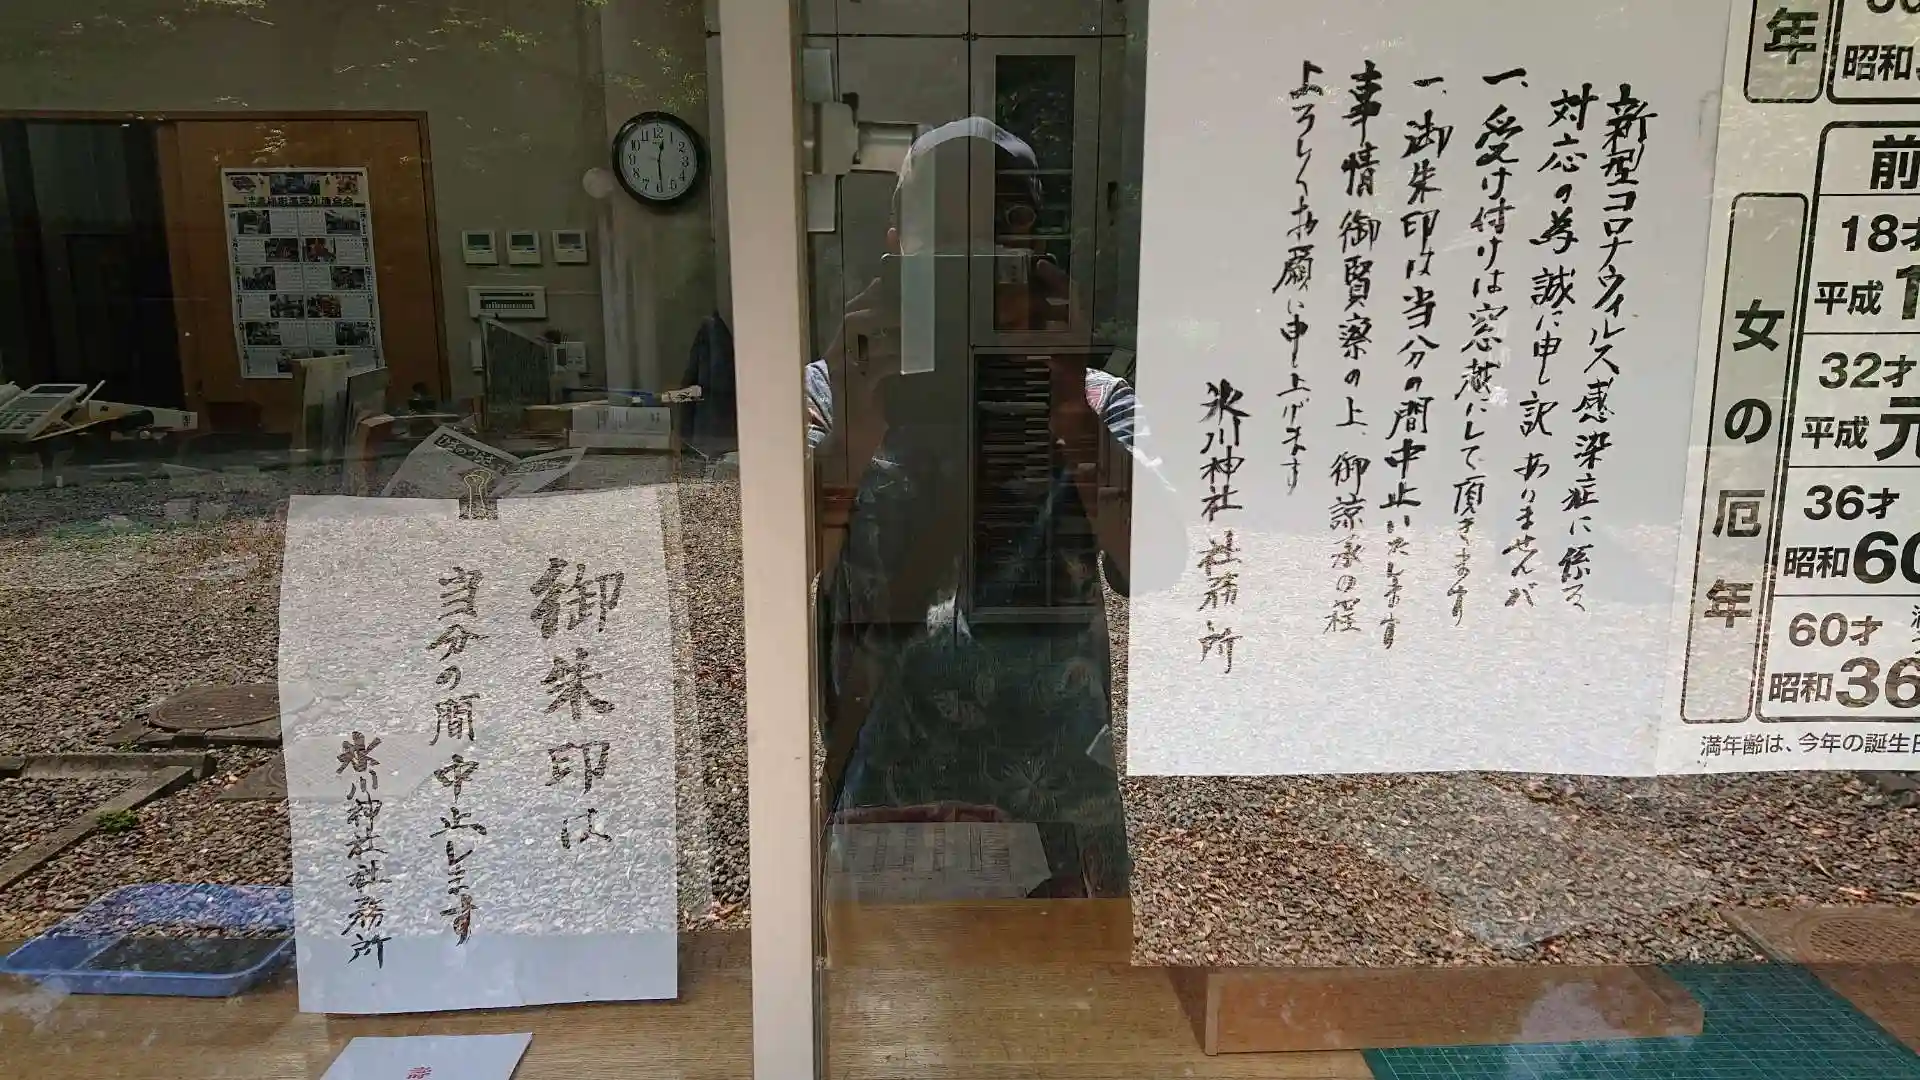 新型コロナウィルス感染症に係る
対応の為誠に申し訳ありませんが
一、受け付けは窓越にして頂きます
一、御朱印は当分の間中止いたします
事情御賢察の上、御諒承の程
よろしくお願い申し上げます
氷川神社 社務所
御朱印は
当分の間中止します
氷川神社社務所
年
昭和
前
女の厄年
18才
平成
32才
平成元
36才
昭和60
60才
昭和36
満年齢は、今年の誕生日